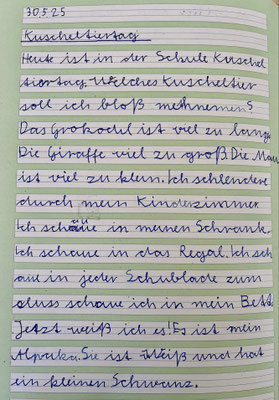 30.5.25
Kuscheltiertag
Heute ist in der Schule Kuschel
tiertag. Welches Kuscheltier
soll ich bloß methnemen?
Das Grokodil ist viel zu lang.
Die Giraffe viel zu groß. Die Maus
ist viel zu klein. Ich schlendere
durch mein Kinderzimmer.
Ich schaue in meinen Schrank.
Ich schaue in das Regal. Ich sch
aue in jeder Schublade zum
aluss schaue ich in mein Bett.
Jetzt weiß ich es! Es ist mein
Alpaka. Sie ist Weiß und hat
ein kleinen Schwanz.